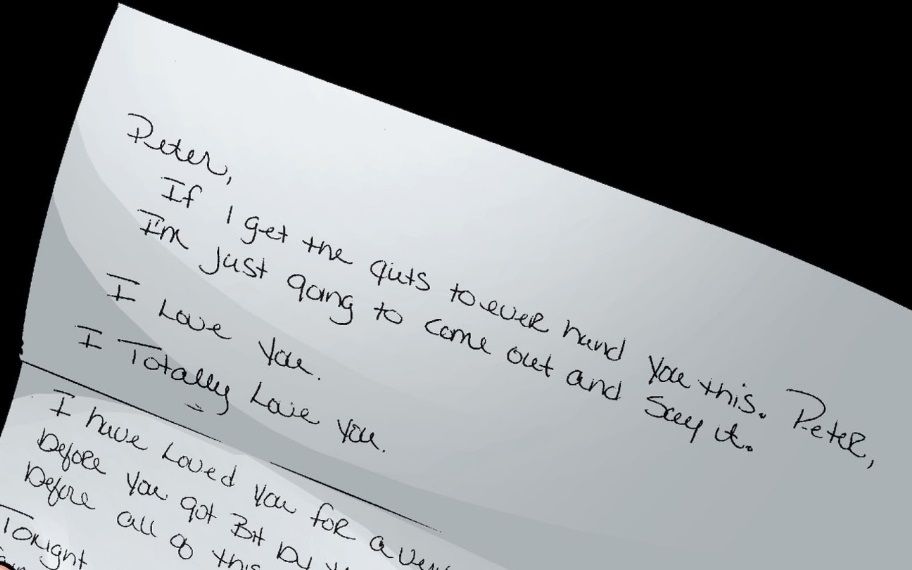 Peter,
If I get the guts to ever hand you this. Peter,
I'm just going to come out and say it.
I Love You.
I Totally Love You.
I have Loved You for a very
before You got Bit by
before all of this
Tonight